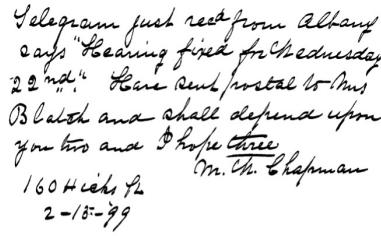 Telegram just recd from Albany
says "Hearing fixed for Wednesday
22nd." Have sent postal to Mrs
Blatch and shall depend upon
you two and I hope three
M. M. Chapman
160 Hicks St
2-15-99